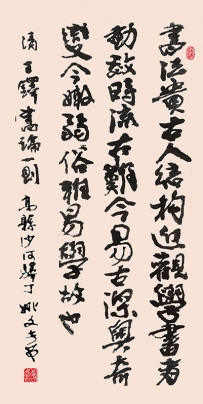 書法貴古人结构近觀學書者
動效時流古難今易古深奧奇
變今嫩弱俗雅易學故也
清王鐸書論一則 高縣沙河驛 姚文